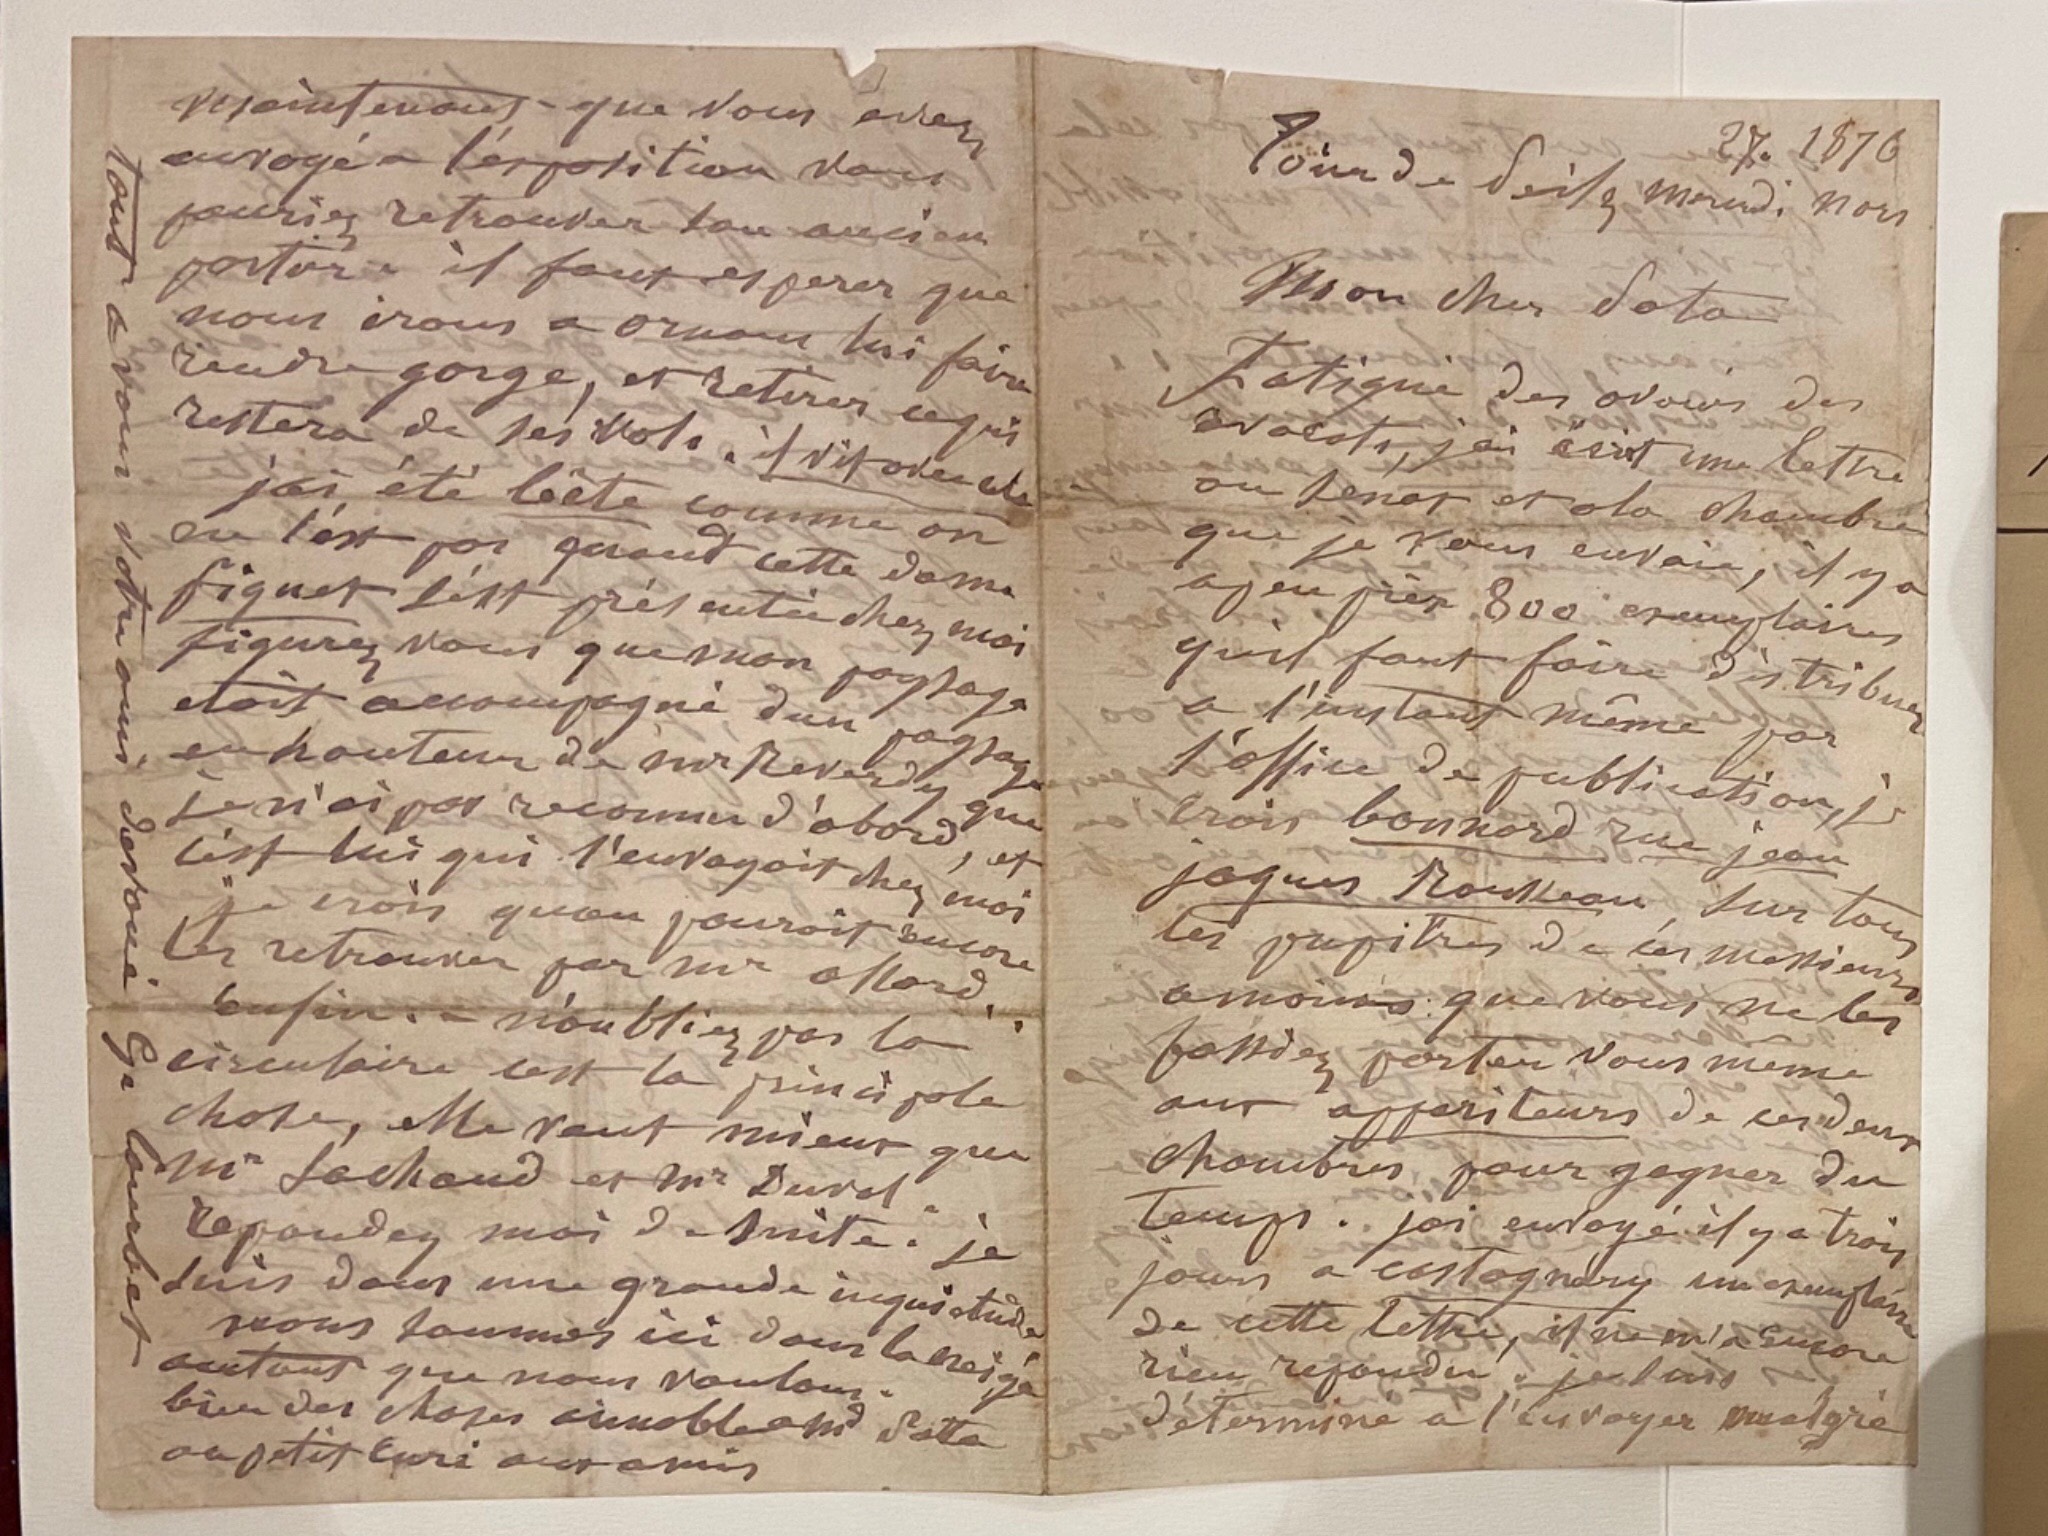 27. 1876
Tour de Peilz mardi mars
Mon cher Sata
Fatigué des avocis des
avocats, j'ai écrit une lettre
au senat et a la chambre
que je vous envoie, il y a
a peu près 800 exemplaires
qu'il faut faire distribuer
a l'instant même par
l'office de publication, je
crois bonnard rue jean
jaques Rousseau, sur tous
les pupitres de ces messieurs
a moins que vous ne les
fassiez porter vous même
aux appariteurs de ces deux
chambres pour gagner du
temps. j'ai envoyé il y a trois
jours a castagnary un exemplaire
de cette lettre, il ne m'a encore
rien repondu. je suis
déterminé a l'envoyer malgré
maintenant que vous avez
envoyé a l'exposition vous
pouriez retrouver son ancien
il faut esperer que
nous irons a ornans lui faire
rendre gorge, et retirer ce qui
restera de ses vols. il vit avec cela
j'ai été bête comme on
ne l'est pas quand cette dame
figuet s'est présentée chez moi
figurez vous que mon paysage
etait accompagné d'un paysage
en hauteur de mr Reverdy que
je n'ai pas reconnu d'abord, et
c'est lui qui l'envoyait chez moi
je crois qu'on pourait encore
les retrouver par mr allard.
enfin. n'oubliez pas la
circulaire c'est la principale
chose, elle vaut mieux que
Mr Lachaud et Mr Duval
repondez moi de suite. je
suis dans une grande inquietude
nous sommes ici dans la neige
autant que nous voulons.
bien des choses aimable a md Sata
au petit curé aux amis
Tout a vous votre ami devoué G. Courbet